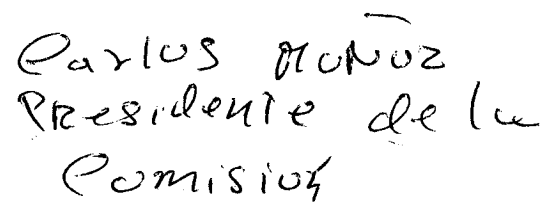 Carlos Muñoz
Presidente de la
Comisión